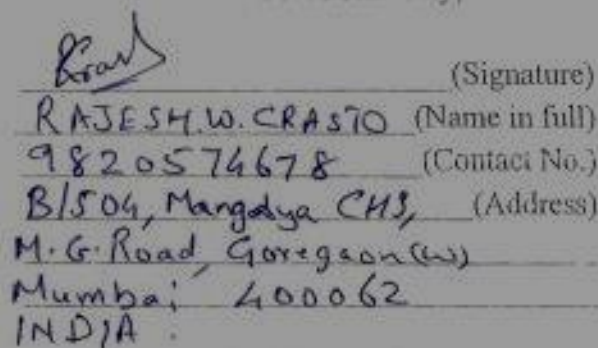 (Signature)
RAJESH.W.CRASTO (Name in full)
9820574678 (Contact No.)
B/504, Mangalya CHS, (Address)
M.G.Road, Goregaon(W)
Mumbai 400062
INDIA.